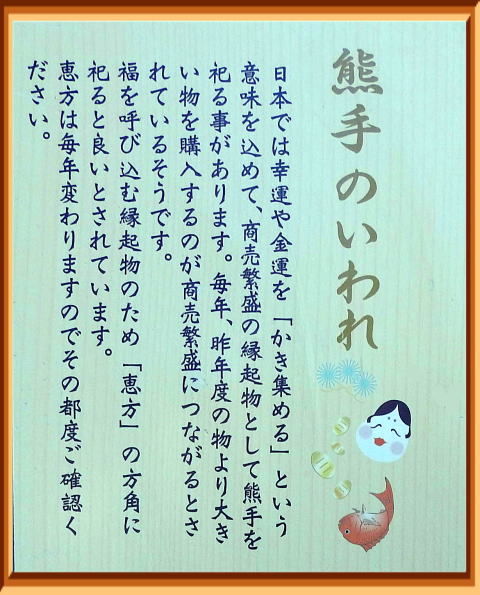 熊手のいわれ
日本では幸運や金運を「かき集める」という
意味を込めて、商売繁盛の縁起物として熊手を
祀る事があります。毎年、昨年度の物より大き
い物を購入するのが商売繁盛につながるとさ
れているそうです。
福を呼び込む縁起物のため「恵方」の方角に
祀ると良いとされています。
恵方は毎年変わりますのでその都度ご確認く
ださい。